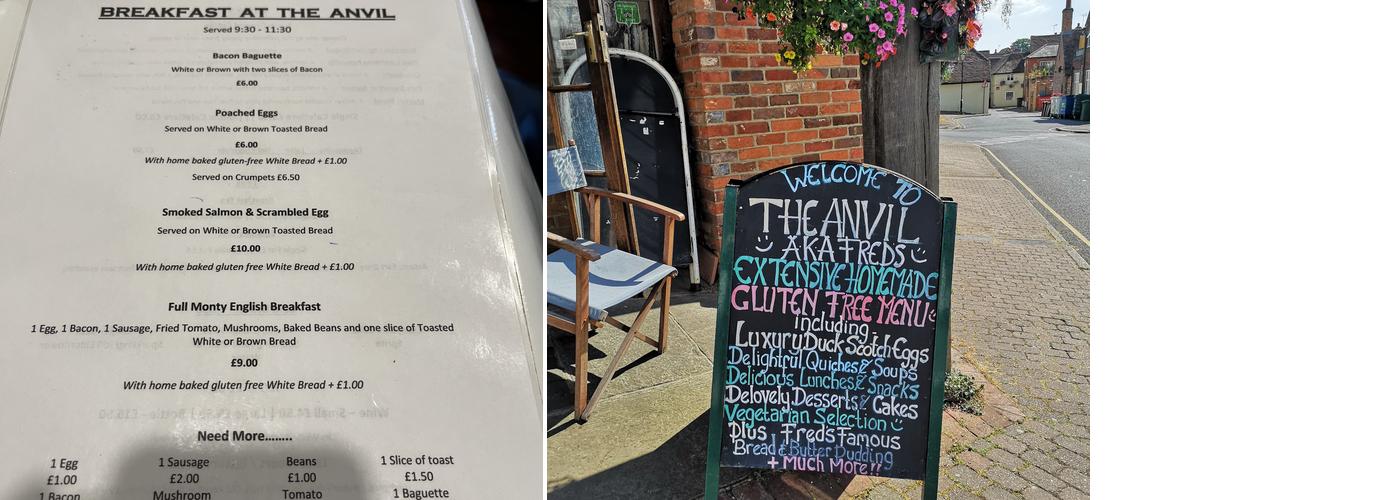 BREAKFAST AT THE ANVIL
Served 9:30 - 11:30
Bacon Baguette
White or Brown with two slices of Bacon
£6.00
Poached Eggs
Served on White or Brown Toasted Bread
£6.00
With home baked gluten-free White Bread + £1.00
Served on Crumpets £6.50
Smoked Salmon & Scrambled Egg
Served on White or Brown Toasted Bread
£10.00
With home baked gluten free White Bread + £1.00
Full Monty English Breakfast
1 Egg, 1 Bacon, 1 Sausage, Fried Tomato, Mushrooms, Baked Beans and one slice of Toasted
White or Brown Bread
£9.00
With home baked gluten free White Bread + £1.00
Need More........
1 Egg 1 Sausage Beans 1 Slice of toast
£1.00 £2.00 £1.00 £1.50
1 Bacon Mushroom Tomato 1 Baguette
WELCOME TO
THE ANVIL
AKA FREDS
EXTENSIVE HOMEMADE
GLUTEN FREE MENU
including
Luxury Duck Scotch Eggs
Delightful Quiches & Soups
Delicious Lunches & Snacks
Delovely Desserts & Cakes
Vegetarian Selection
Plus, Fred's Famous
Bread & Butter Pudding
+ Much More!!